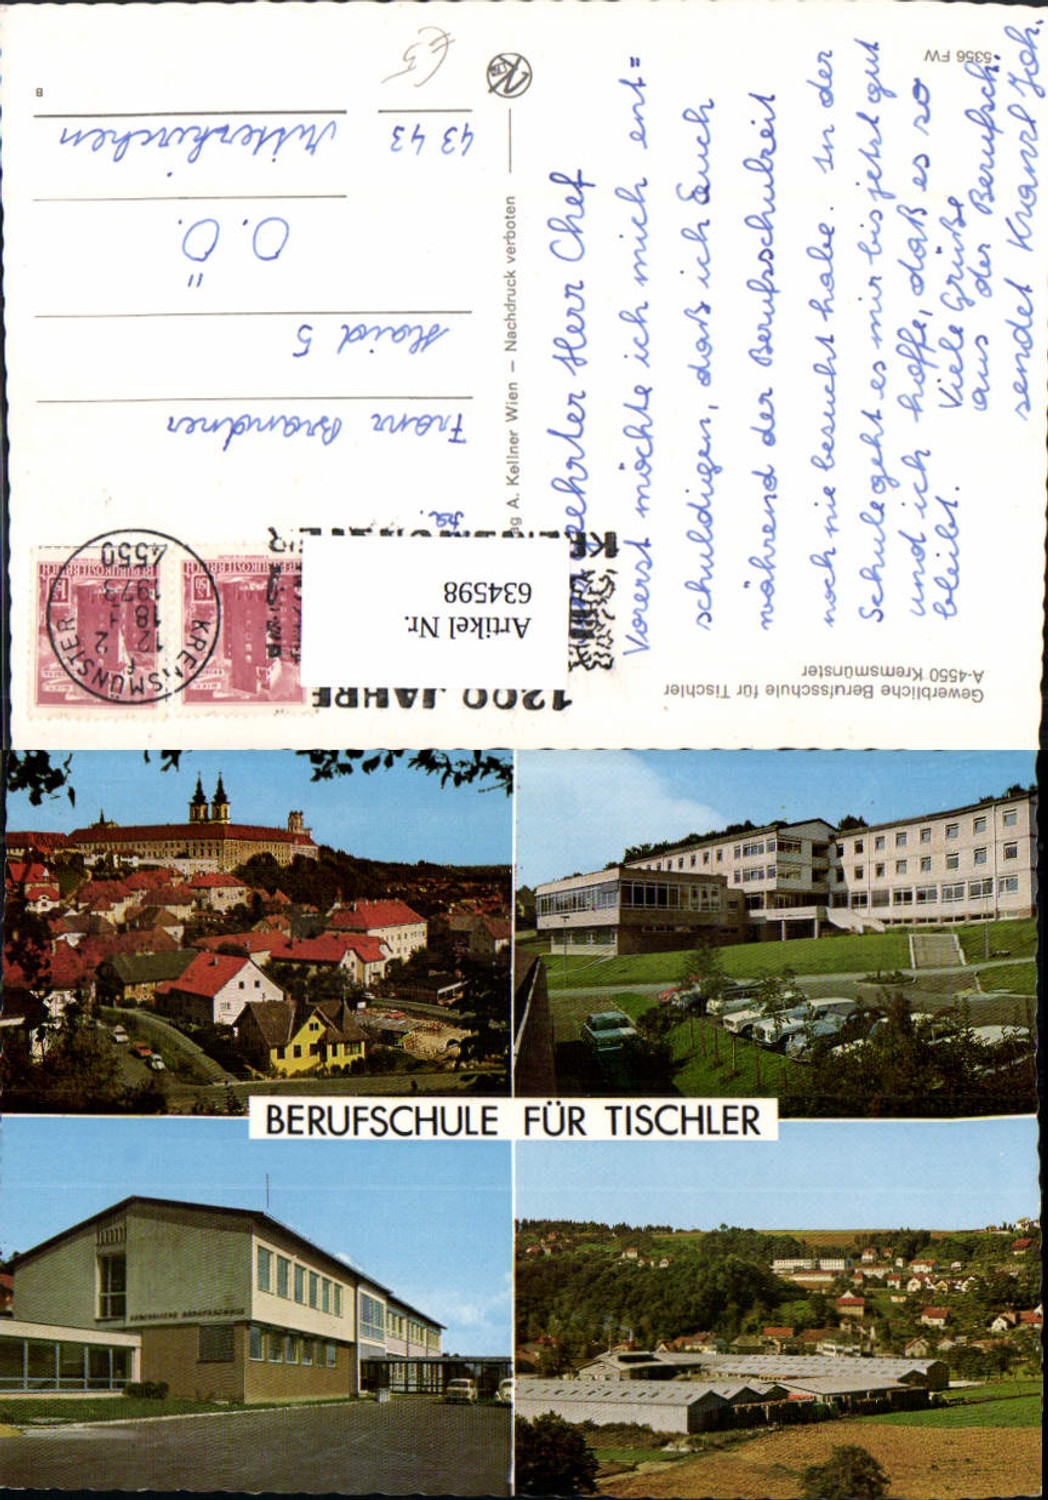 Gewerbliche Berufsschule für Tischler
A-4550 Kremsmünster
5356 FW
geehrter Herr Chef
Vorerst möchte ich mich ent=
schuldigen, daß ich Euch
während der Berufsschulzeit
noch nie besucht habe. In der
Schule geht es mir bis jetzt gut
und ich hoffe, daß es so
bleibt.
Viele Grüße
aus der Berufsch.
sendet Kranzl Joh.
ag A. Kellner Wien — Nachdruck verboten
1200 JAHRE
KREMSMÜNSTER
4550
KREMSMÜNSTER
12 2
18-1
1973
4550
REPUBLIK ÖSTERREICH
REPUBLIK ÖSTERREICH
Artikel Nr.
634598
Franz Brandner
Haid 5
O.Ö.
4343
Mitterkirchen
B
€5
BERUFSCHULE FÜR TISCHLER
GEWERBLICHE BERUFSSCHULE